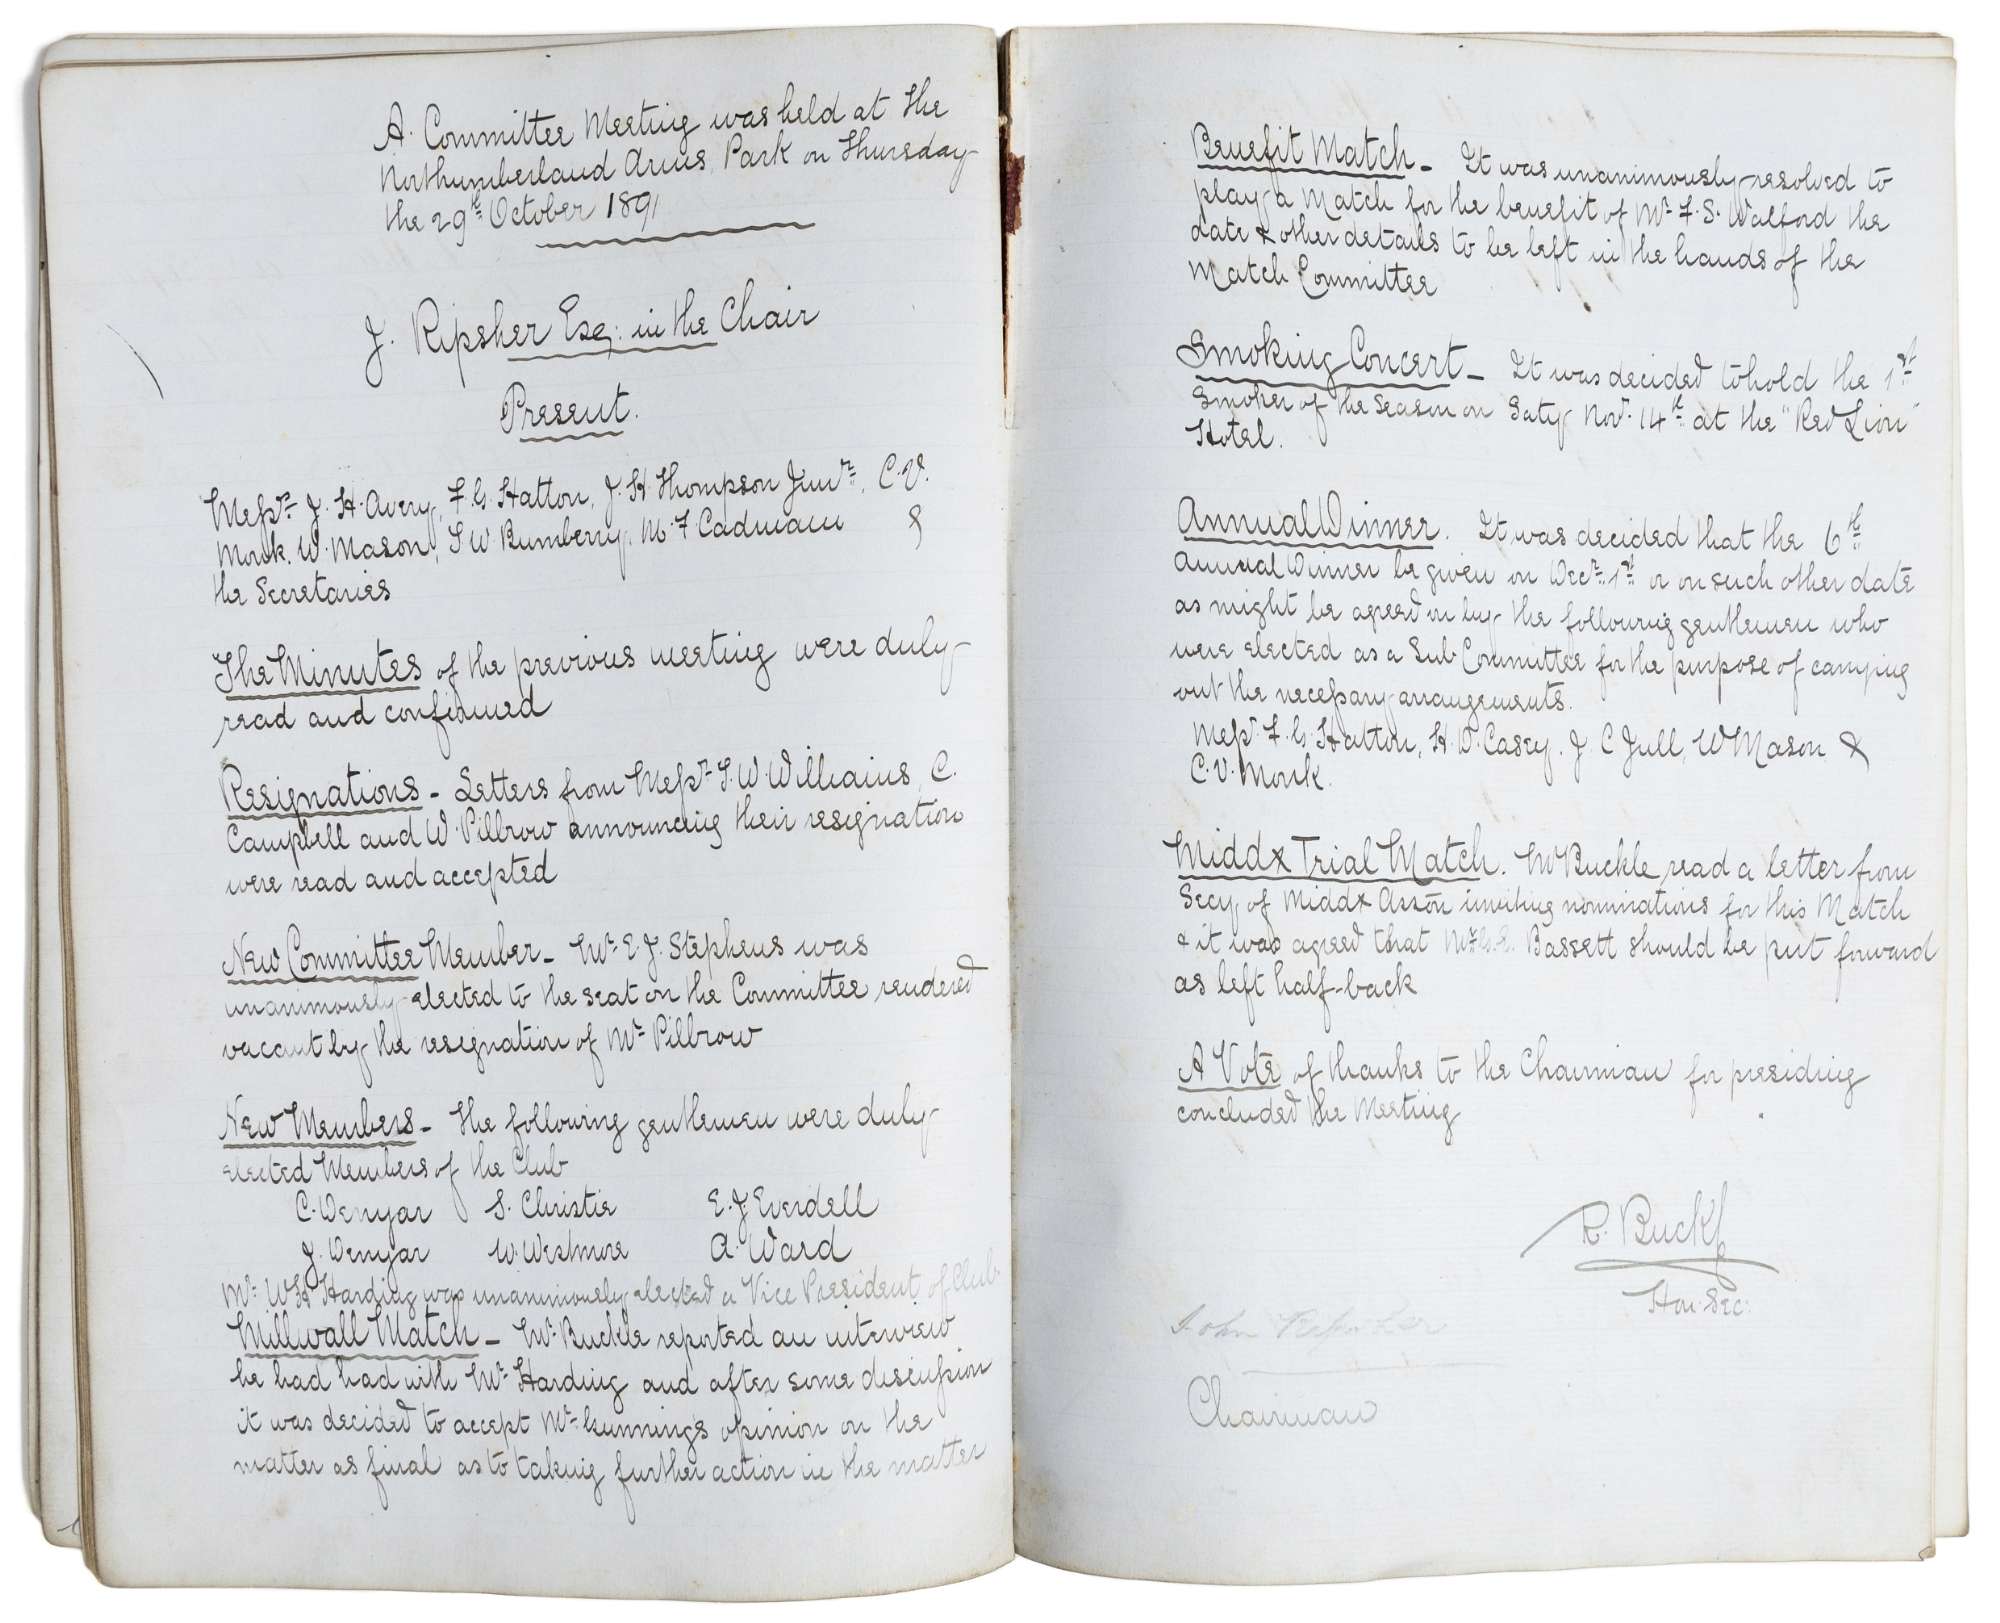 A. Committee Meeting was held at the
Northumberland Arms Park on Thursday
the 29th October 1891
J. Ripsher Esq: in the Chair
Present.
Messrs J. H. Avery, F. G. Hatton, J. H. Thompson Junr, C. V.
Monk. W. Mason, S W Bumberry, M. F. Cadman &
the Secretaries
The Minutes of the previous meeting were duly
read and confirmed
Resignations - Letters from Messrs S. W. Williams, C.
Campbell and W. Pilbrow announcing their resignation
were read and accepted
New Committee Member - Mr E J. Stephens was
unanimously elected to the seat on the Committee rendered
vacant by the resignation of Mr Pilbrow
New Members - The following gentlemen were duly
elected Members of the Club
C. Denyar S. Christie E. J. Everdell
J. Denyar W. Westmore A. Ward
Mr W H Harding was unanimously elected a Vice President of Club
Millwall Match - Mr Buckle reported an interview
he had had with Mr Harding and after some discussion
it was decided to accept Mr Gunnings opinion on the
matter as final as to taking further action in the matter
Benefit Match - It was unanimously resolved to
play a Match for the benefit of Mr F. S. Walford the
date & other details to be left in the hands of the
Match Committee
Smoking Concert - It was decided to hold the 1st
Smoker of the Season on Saty Nov. 14th at the "Red Lion"
Hotel.
Annual Dinner. It was decided that the 6th
Annual Dinner be given on Decr. 1st or on such other date
as might be agreed on by the following gentlemen who
were elected as a Sub Committee for the purpose of carrying
out the necessary arrangements.
Messr F. G. Hatton, H. D. Casey. J C Jull, W Mason &
C. V. Monk.
Middx Trial Match. Mr Buckle read a letter from
Secy of Middx Assōn inviting nominations for this Match
& it was agreed that Mr G. E. Bassett should be put forward
as left half-back
A Vote of thanks to the Chairman for presiding
concluded the Meeting
R. Buckle
Hon. Sec:
John Ripsher
Chairman